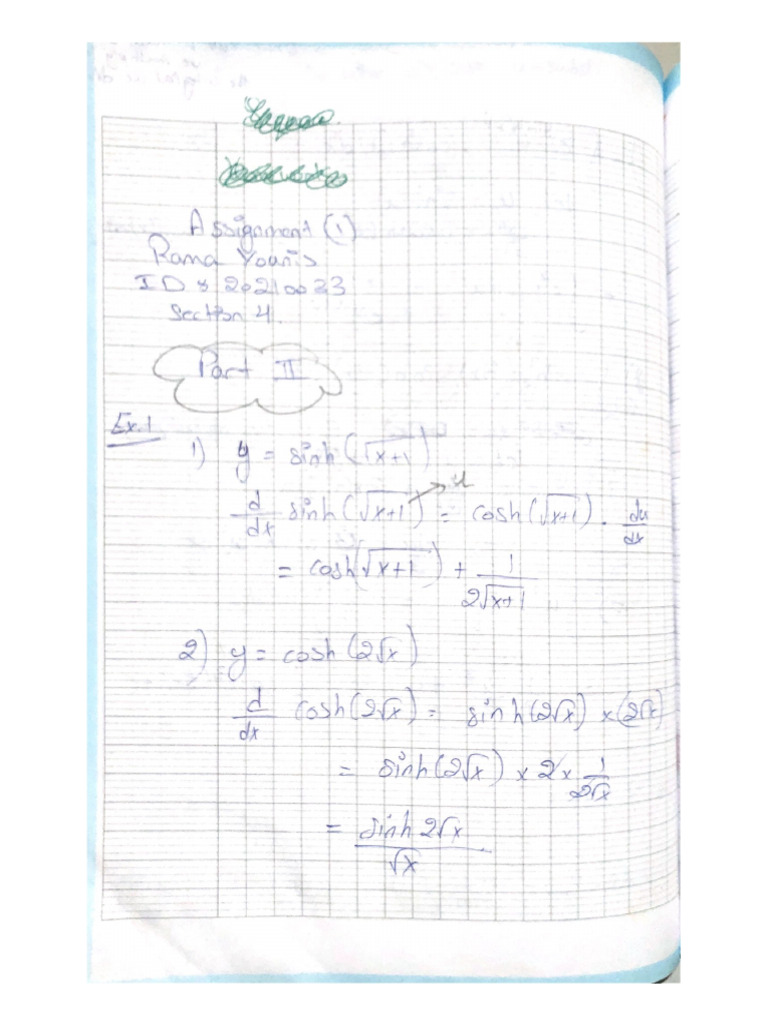 Assignment (1)
Rana Younis
ID : 20210033
Section 4.
Part II
Ex.1
1) y = sinh(√(x+1))
d/dx sinh(√(x+1)) → u = cosh(√(x+1)) . du/dx
= cosh(√(x+1)) + 1/(2√(x+1))
2) y = cosh(2√x)
d/dx cosh(2√x) = sinh(2√x) × (2√x)
= sinh(2√x) × 2 × 1/(2√x)
= sinh 2√x / √x